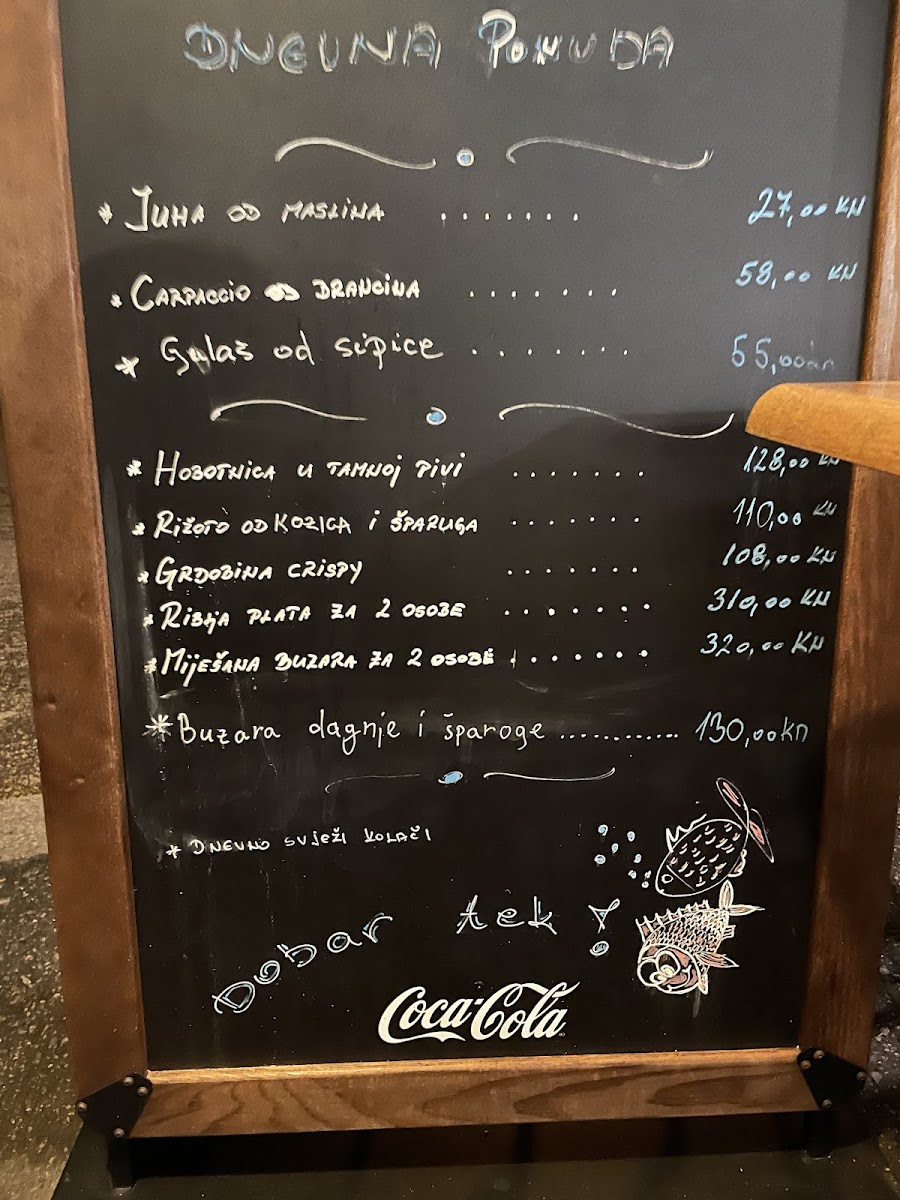 DNEVNA PONUDA
* JUHA OD MASLINA ....... 27,00 KN
* CARPACCIO OD BRANCINA ....... 58,00 KN
* Gulaš od sipice ....... 55,00kn
* HOBOTNICA U TAMNOJ PIVI ....... 128,00 KN
* RIŽOTO OD KOZICA I ŠPARUGA ....... 110,00 KN
* GRDOBINA CRISPY ....... 108,00 KN
* RIBLJA PLATA ZA 2 OSOBE ....... 310,00 KN
* MIJEŠANA BUZARA ZA 2 OSOBE ....... 320,00 KN
* Buzara dagnje i šparoge ............ 130,00kn
* DNEVNO SVJEŽI KOLAČI
Dobar tek!
Coca-Cola